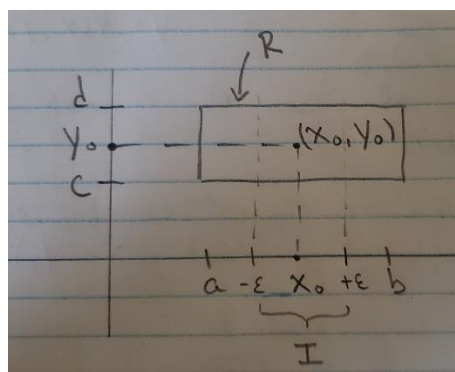 R
d
y₀ (x₀, y₀)
c
a -ε x₀ +ε b
I